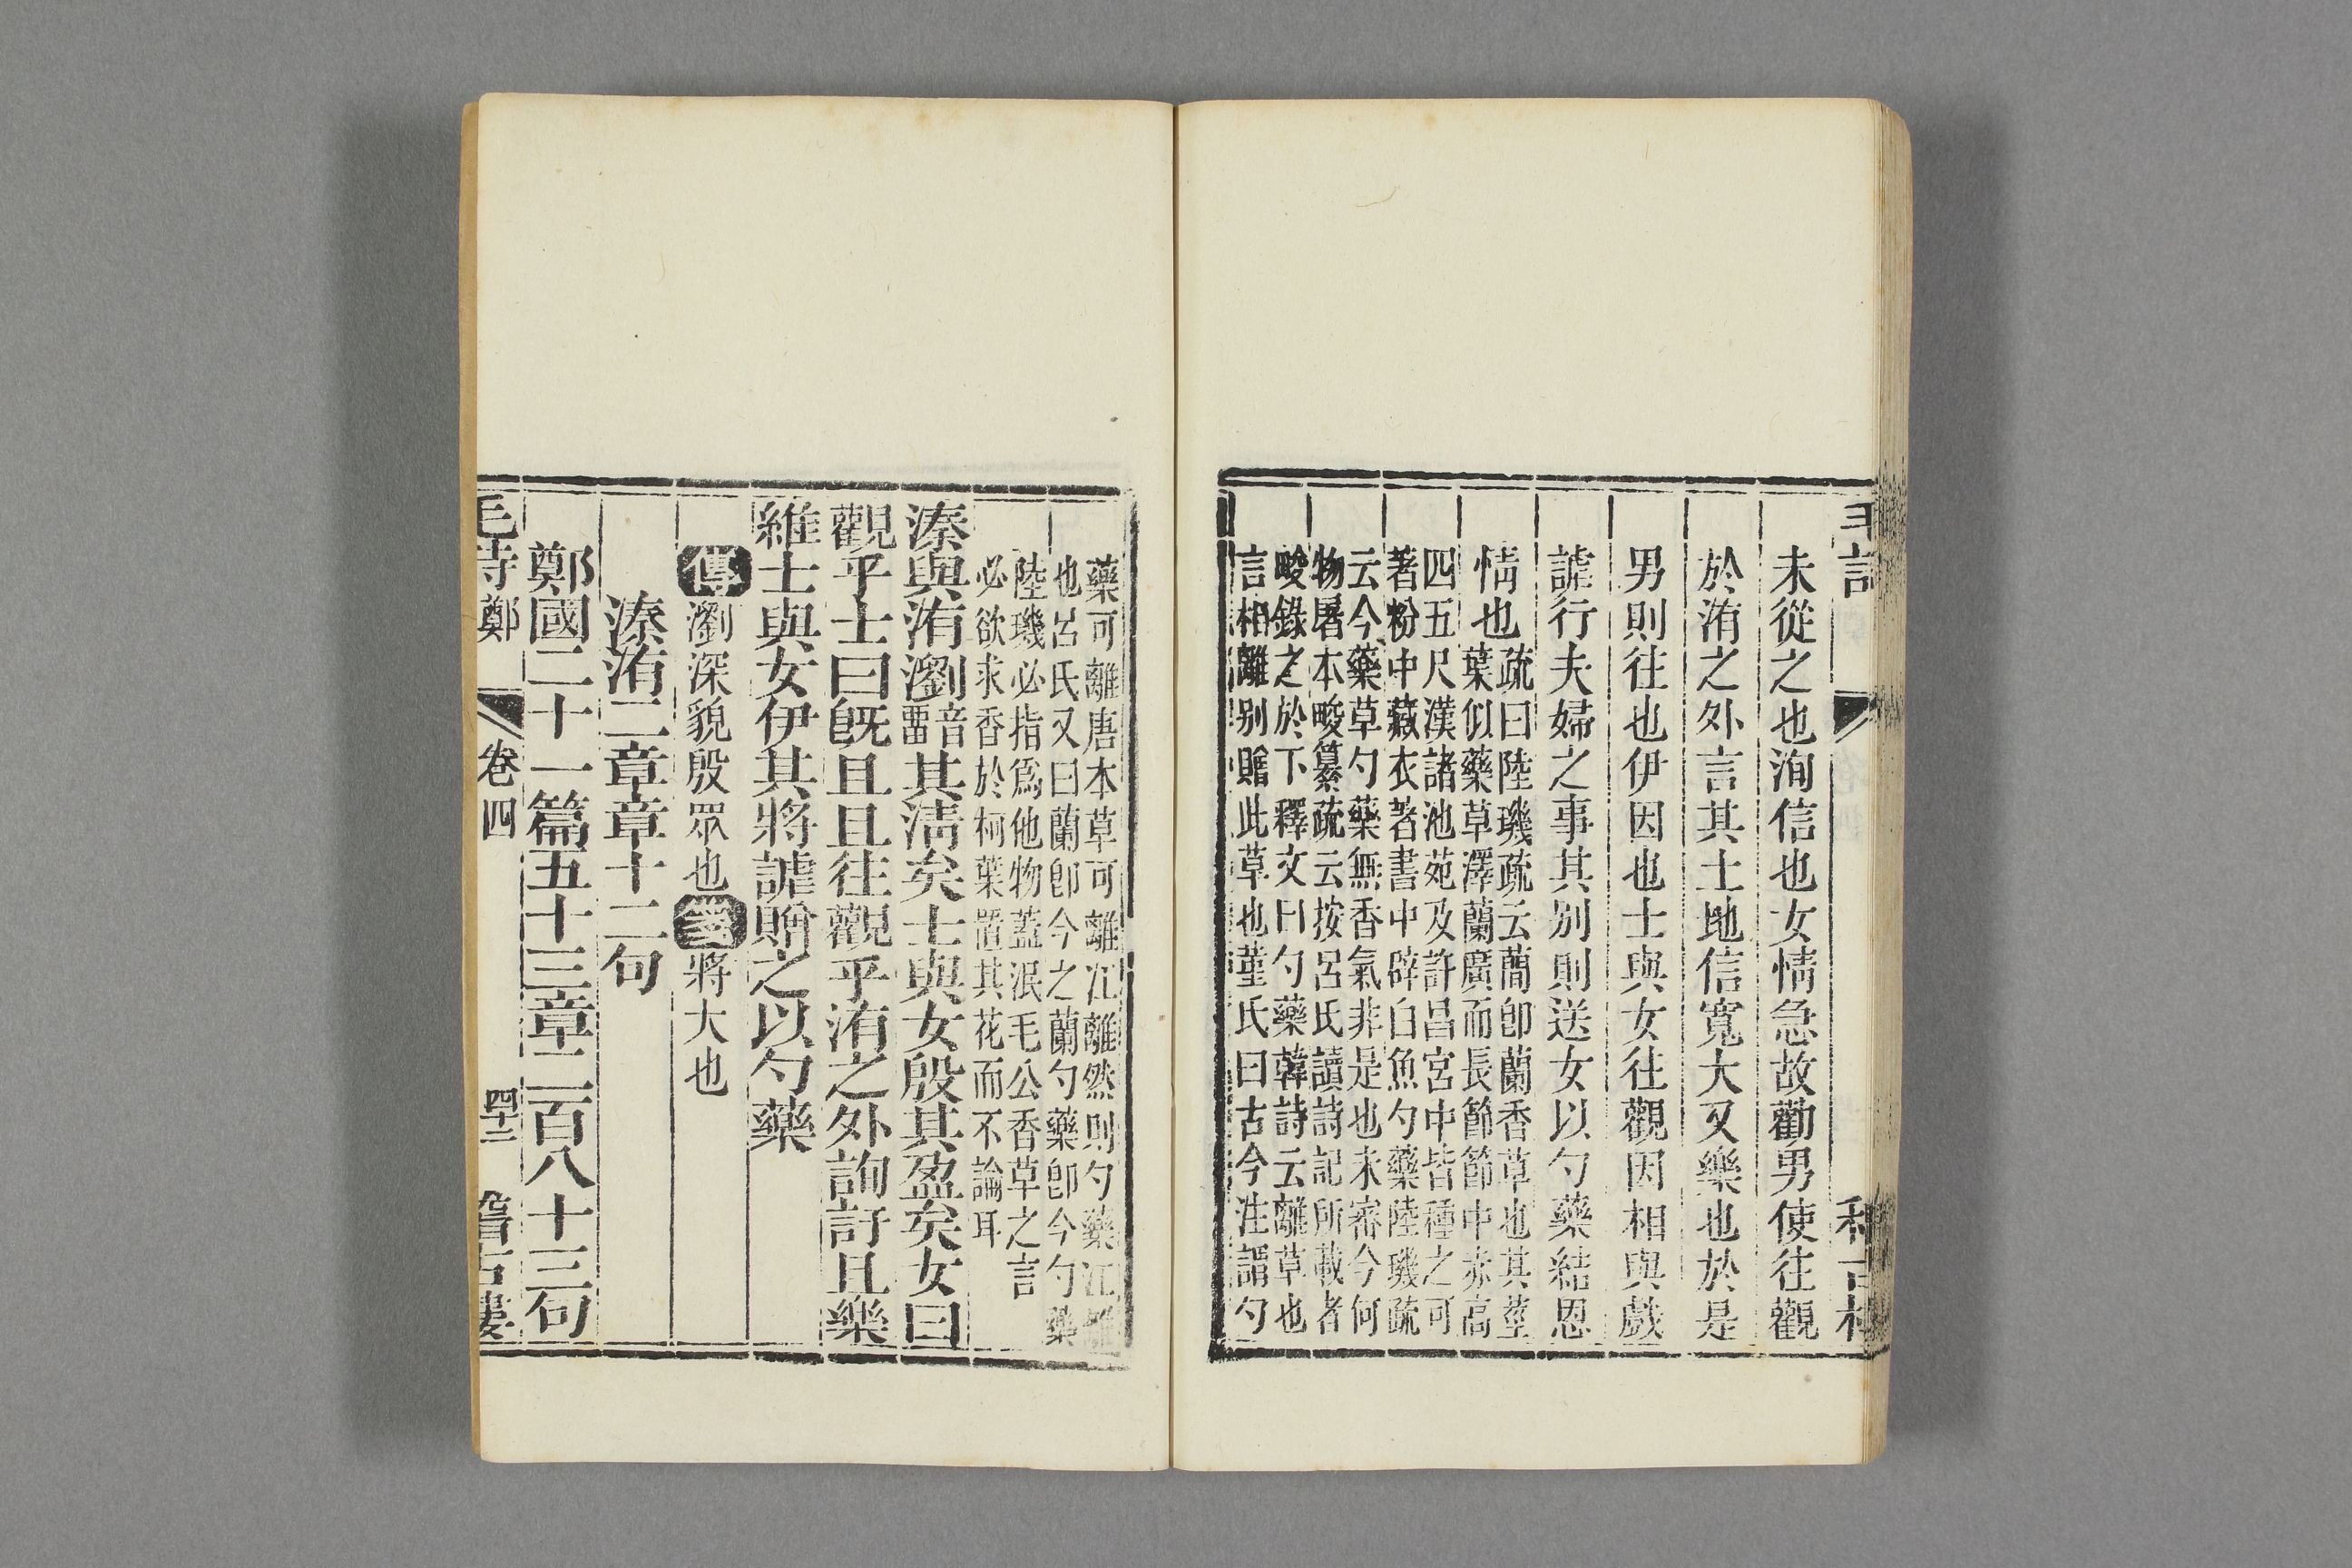 未從之也洵信也女情急故勸男使往觀
於洧之外言其土地信寬大又樂也於是
男則往也伊因也士與女往觀因相與戲
謔行夫婦之事其别則送女以勺藥結恩
情也疏曰陸璣疏云蕑卽蘭香草也其莖
葉似藥草澤蘭廣而長節節中赤高
四五尺漢諸池苑及許昌宮中皆種之可
著粉中藏衣著書中辟白魚勺藥陸璣疏
云今藥草勺藥無香氣非是也未審今何
物屠本畯纂疏云按呂氏讀詩記所載者
畯錄之於下釋文曰勺藥韓詩云離草也
言相離别贈此草也董氏曰古今注謂勺
藥可離唐本草可離江離然則勺藥江離
也呂氏又曰蘭卽今之蘭勺藥卽今勺藥
陸璣必指爲他物蓋泯毛公香草之言
必欲求香於柯葉置其花而不論耳
溱與洧瀏音其淸矣士與女殷其盈矣女曰
觀乎士曰旣且且往觀乎洧之外詢訏且樂
維士與女伊其將謔贈之以勺藥
傳瀏深貌殷眾也箋將大也
溱洧二章章十二句
鄭國二十一篇五十三章二百八十三句
毛詩鄭 卷四 四十二 稽古樓